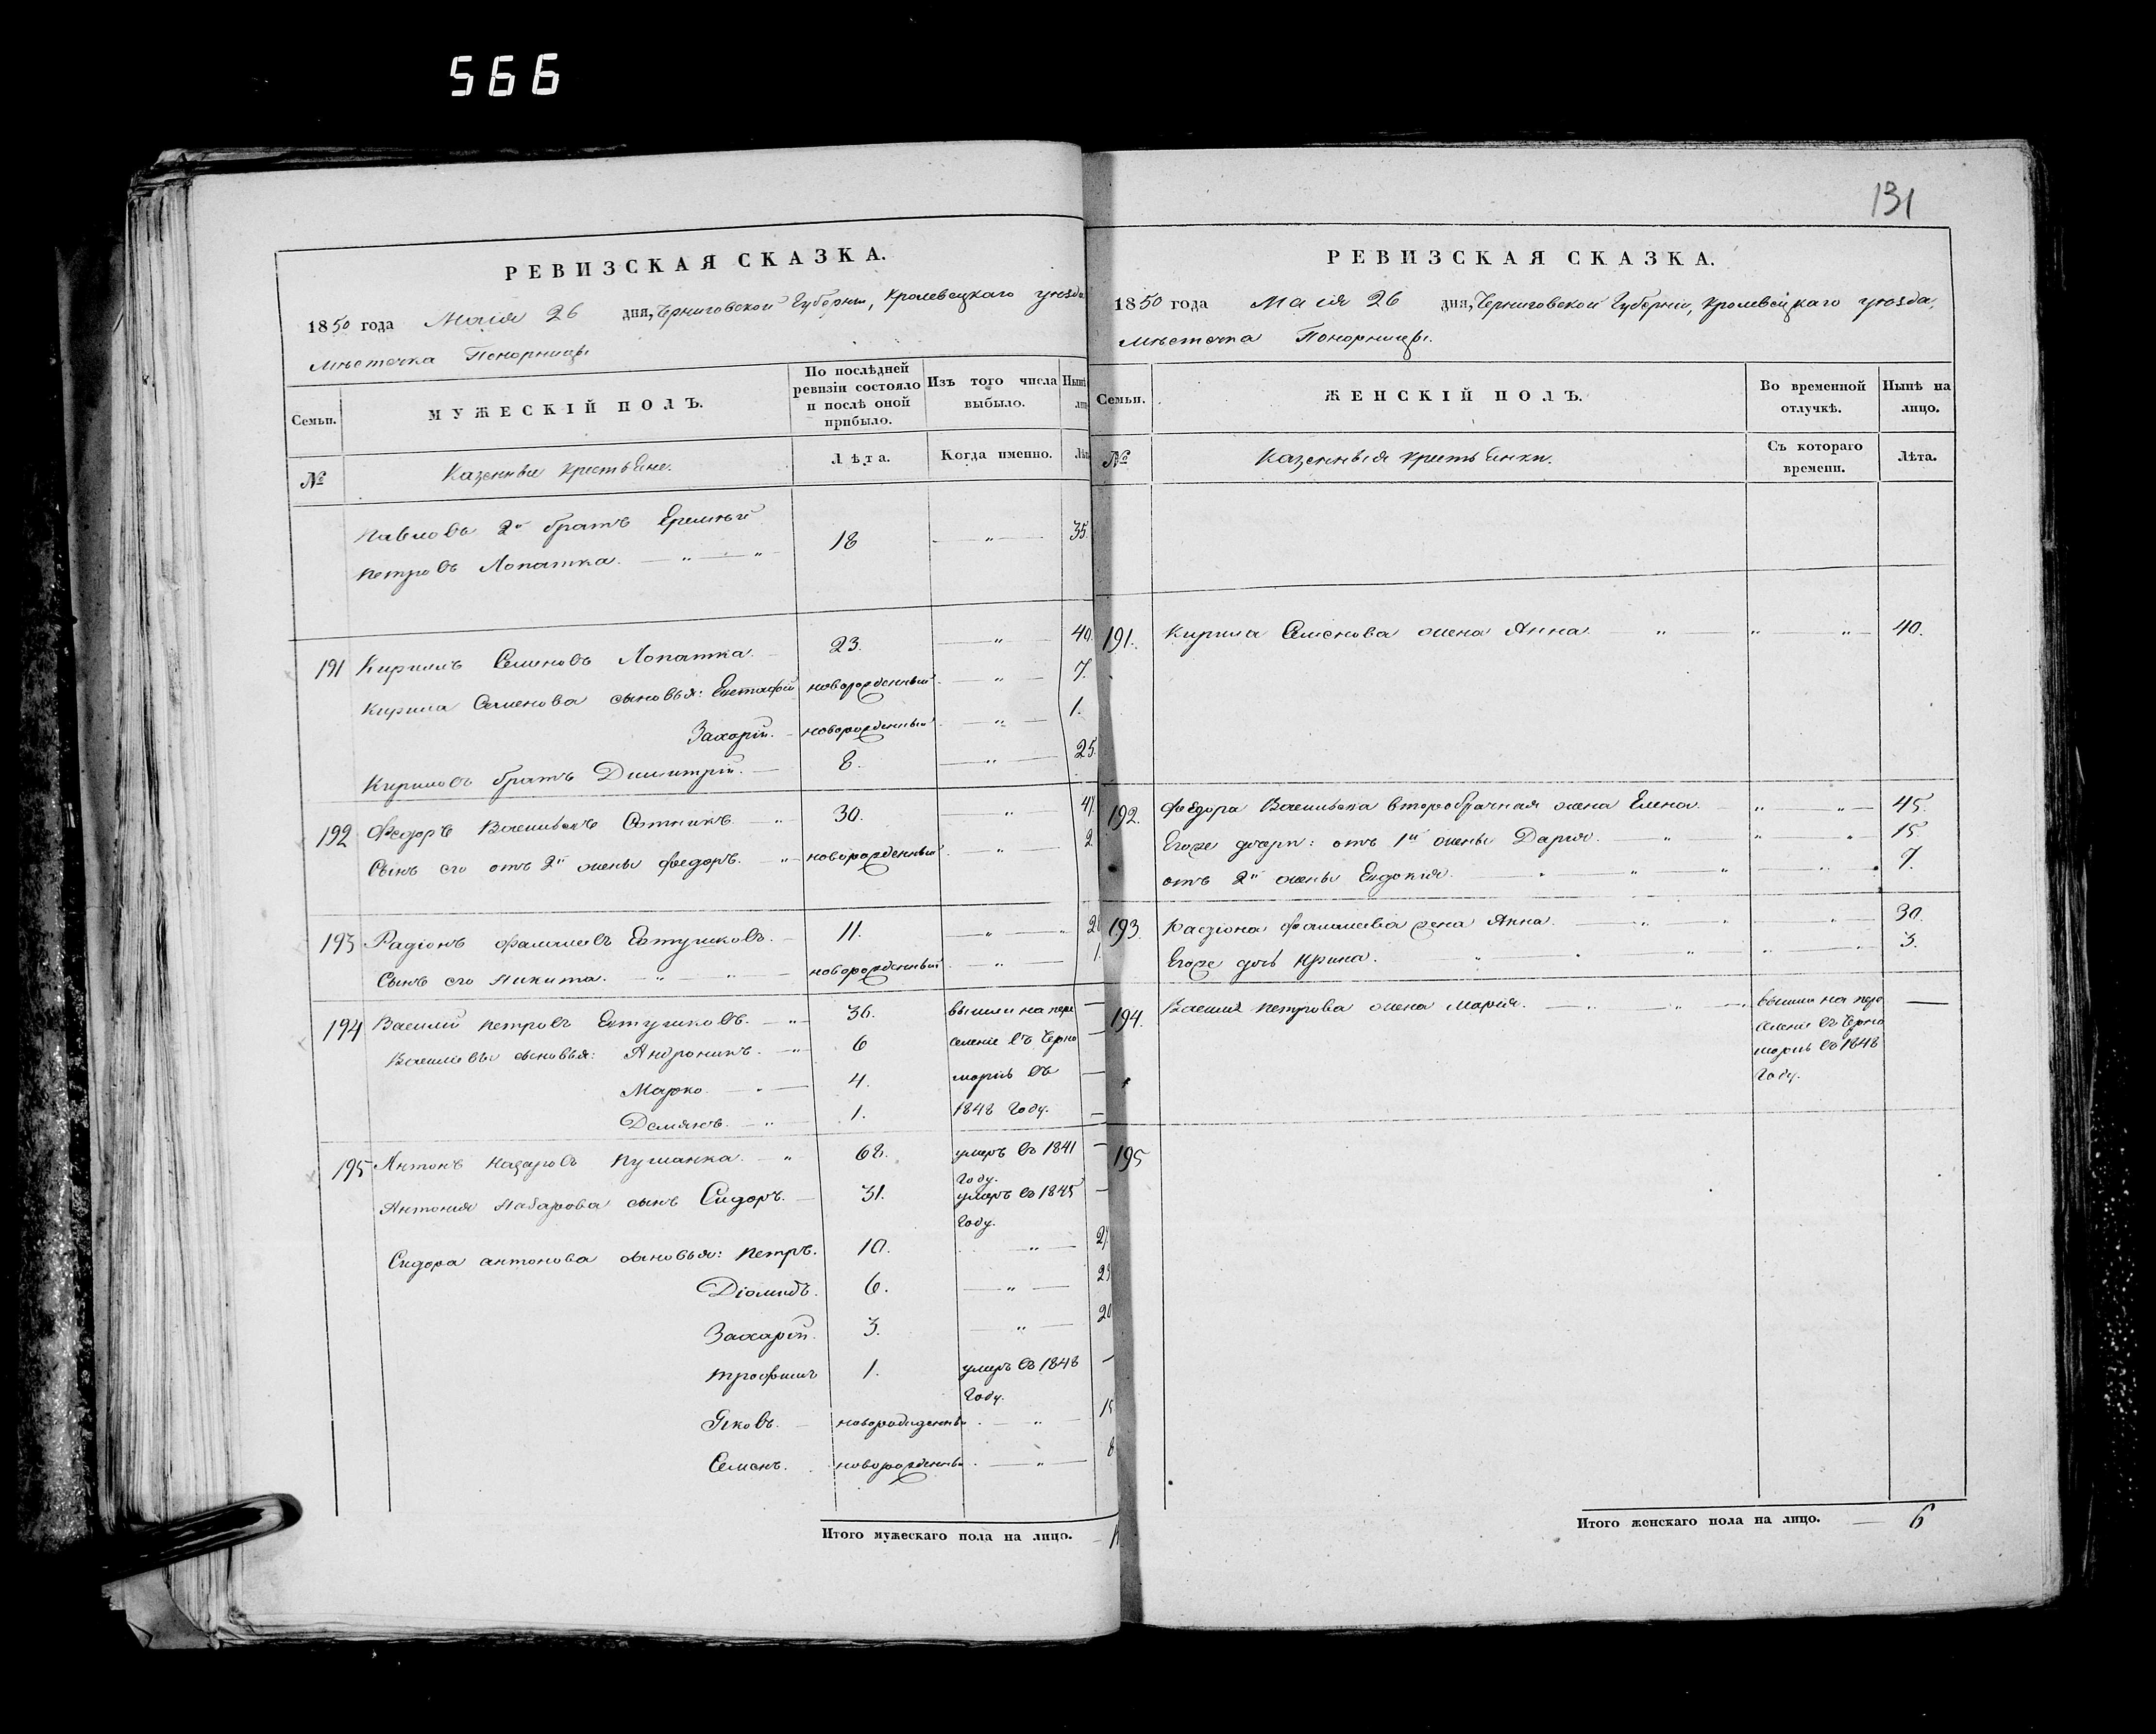 566
РЕВИЗСКАЯ СКАЗКА.
1850 года Маія 26 дня, Черниговской Губерніи, Кролевецкаго уезда
мѣстечка Понорницы
Семьи. МУЖЕСКІЙ ПОЛЪ. По послѣдней ревизіи состояло и послѣ оной прибыло. Изъ того числа выбыло.
№ Казенные крестьяне. Лѣта. Когда именно.
Павловъ 2й братъ Еремѣй
Петровъ Лопатка. 18 " 35.
191 Кирилъ Семеновъ Лопатка. 23. " 40.
Кирила Семенова сыновья: Евстафій новорожденный " 7.
Захарій. новорожденный " 1.
Кириловъ братъ Димитрій. 8. " 25.
192 Федоръ Васильевъ Сотникъ. " 30. "
Сынъ его отъ 2й жены Федоръ. " новорожденный " 2
193 Радіонъ Евтушковъ. 11. "
Сынъ его Никита. " " новорожденный " 1.
194 Василий Петровъ Евтушковъ. " 36. вышли на пере —
Васильевы сыновья: Андроникъ. " 6 селеніе въ Черно —
Марко. " 4. морію въ —
Демянъ. " 1. 1848 Году. —
195 Антонъ Назаровъ Пушанка. " 68. умеръ въ 1841 —
Году.
Антонія Назарова сынъ Сидоръ. 31. умеръ въ 1845 —
Году.
Сидора Антонова сыновья: Петръ. 10. "
Діомидъ. 6. "
Захарій. 3. "
Трофимъ 1. умеръ въ 1848 —
Году.
Яковъ. новорожденны "
Семенъ. новорожденны " 8
Итого мужескаго пола на лицо.
131
РЕВИЗСКАЯ СКАЗКА.
1850 года Маія 26 дня, Черниговской Губерніи, Кролевецкаго уезда,
мѣстечка Понорницы.
Семьи. ЖЕНСКІЙ ПОЛЪ. Во временной отлучкѣ. Нынѣ на лицо.
№ Казенныя крестьянки. Съ котораго времени. Лѣта.
191. Кирила Семенова жена Анна. " " " 40.
192. Федора Васильева второбрачная жена Елена. " " 45.
Егоже дочери: отъ 1й жены Дарія. " " " 15.
отъ 2й жены Евдокія. " " " 7.
193. Радіона жена Анна. " " " 30.
Егоже дочь Ирина. " " " " 3.
194. Василия Петрова жена Марія. " " вышли на пере —
селеніе въ Черно
морію въ 1848
Году.
195
Итого женскаго пола на лицо. — 6